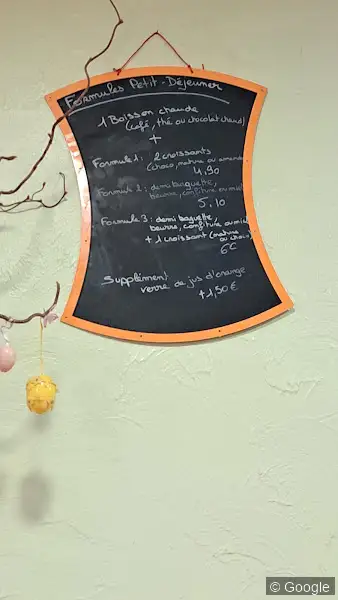 Formules Petit-Déjeuner
1 Boisson chaude
(café, thé ou chocolat chaud)
+
Formule 1: 2 croissants
(choco, nature ou amande)
4,90
Formule 2: demi baguette,
beurre, confiture ou miel
5,10
Formule 3: demi baguette,
beurre, confiture ou miel
+ 1 croissant (nature
ou choco)
6€
Supplément
verre de jus d'orange
+1,50€
© Google